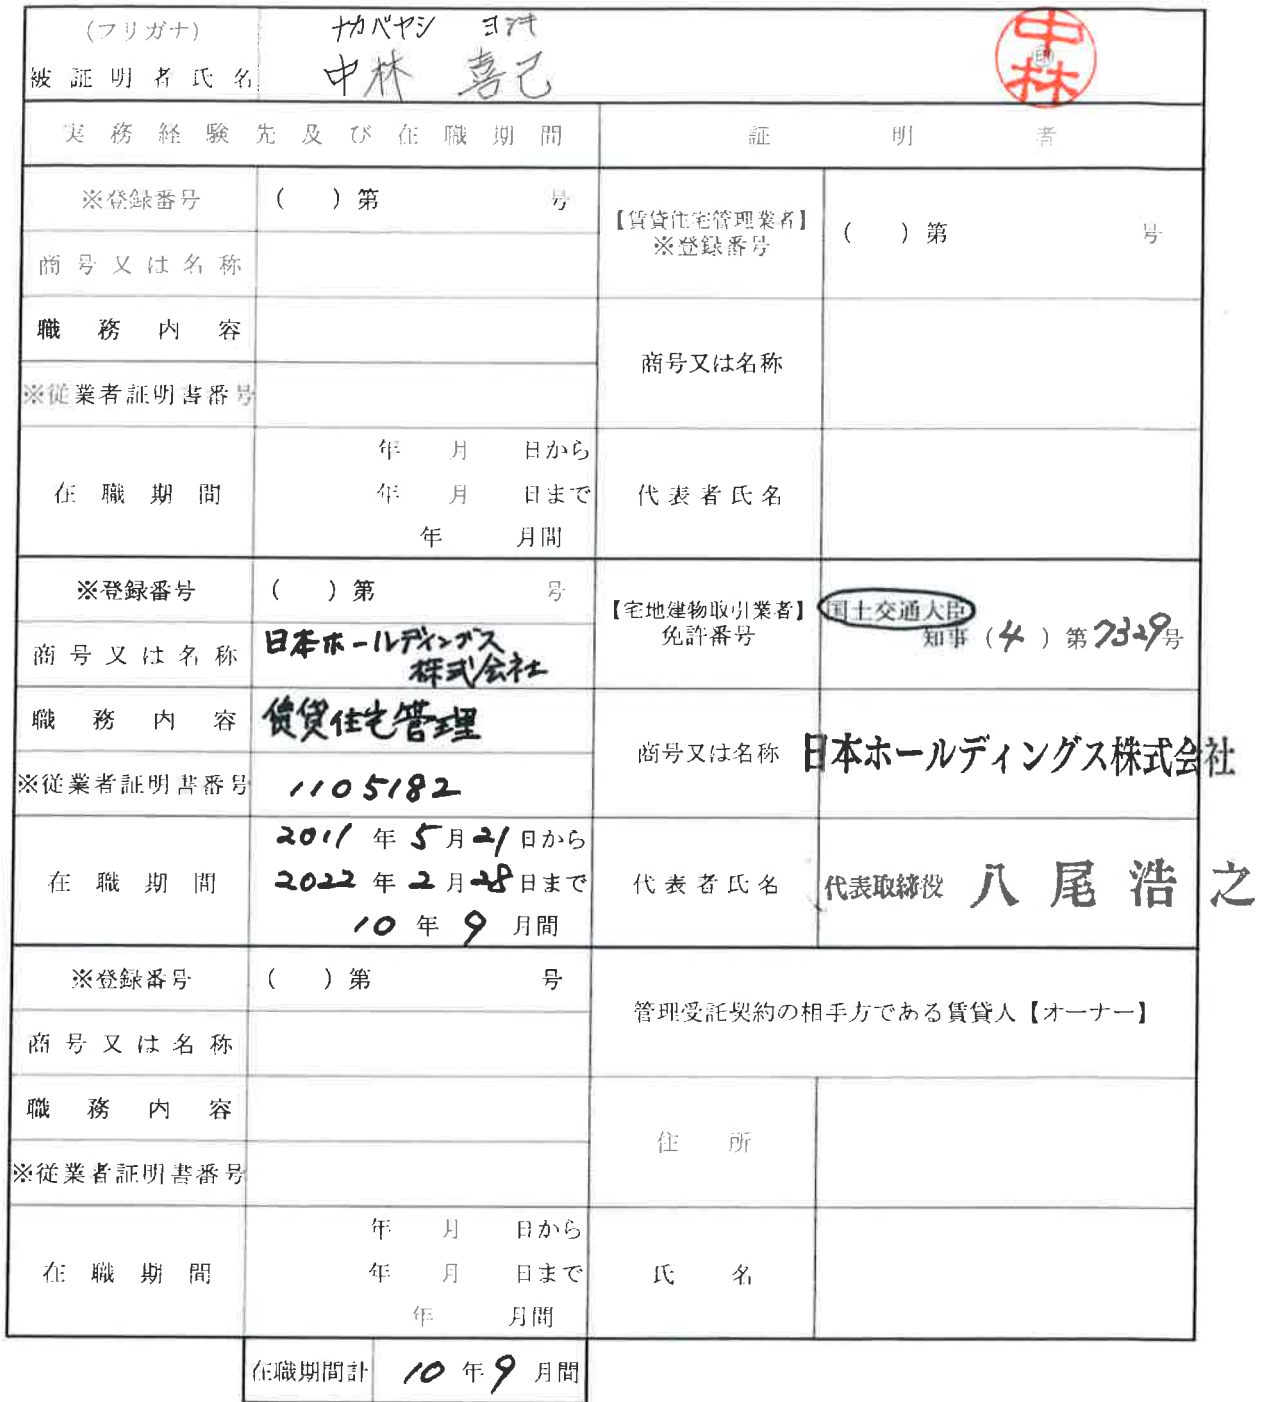 (フリガナ) ナカバヤシ ヨシキ
被証明者氏名 中林 喜己
中林 印
実務経験先及び在職期間 証明者
※登録番号 ( ) 第 号
商号又は名称
職務内容
※従業者証明書番号
在職期間 年 月 日から
年 月 日まで
年 月間
【賃貸住宅管理業者】
※登録番号 ( ) 第 号
商号又は名称
代表者氏名
※登録番号 ( ) 第 号
商号又は名称 日本ホールディングス
株式会社
職務内容 賃貸住宅管理
※従業者証明書番号 1105182
在職期間 2011 年 5 月 21 日から
2022 年 2 月 28 日まで
10 年 9 月間
【宅地建物取引業者】 国土交通大臣
免許番号 知事 ( 4 ) 第 7329 号
商号又は名称 日本ホールディングス株式会社
代表者氏名 代表取締役 八尾浩之
※登録番号 ( ) 第 号
商号又は名称
職務内容
※従業者証明書番号
在職期間 年 月 日から
年 月 日まで
年 月間
管理受託契約の相手方である賃貸人【オーナー】
住所
氏名
在職期間計 10 年 9 月間